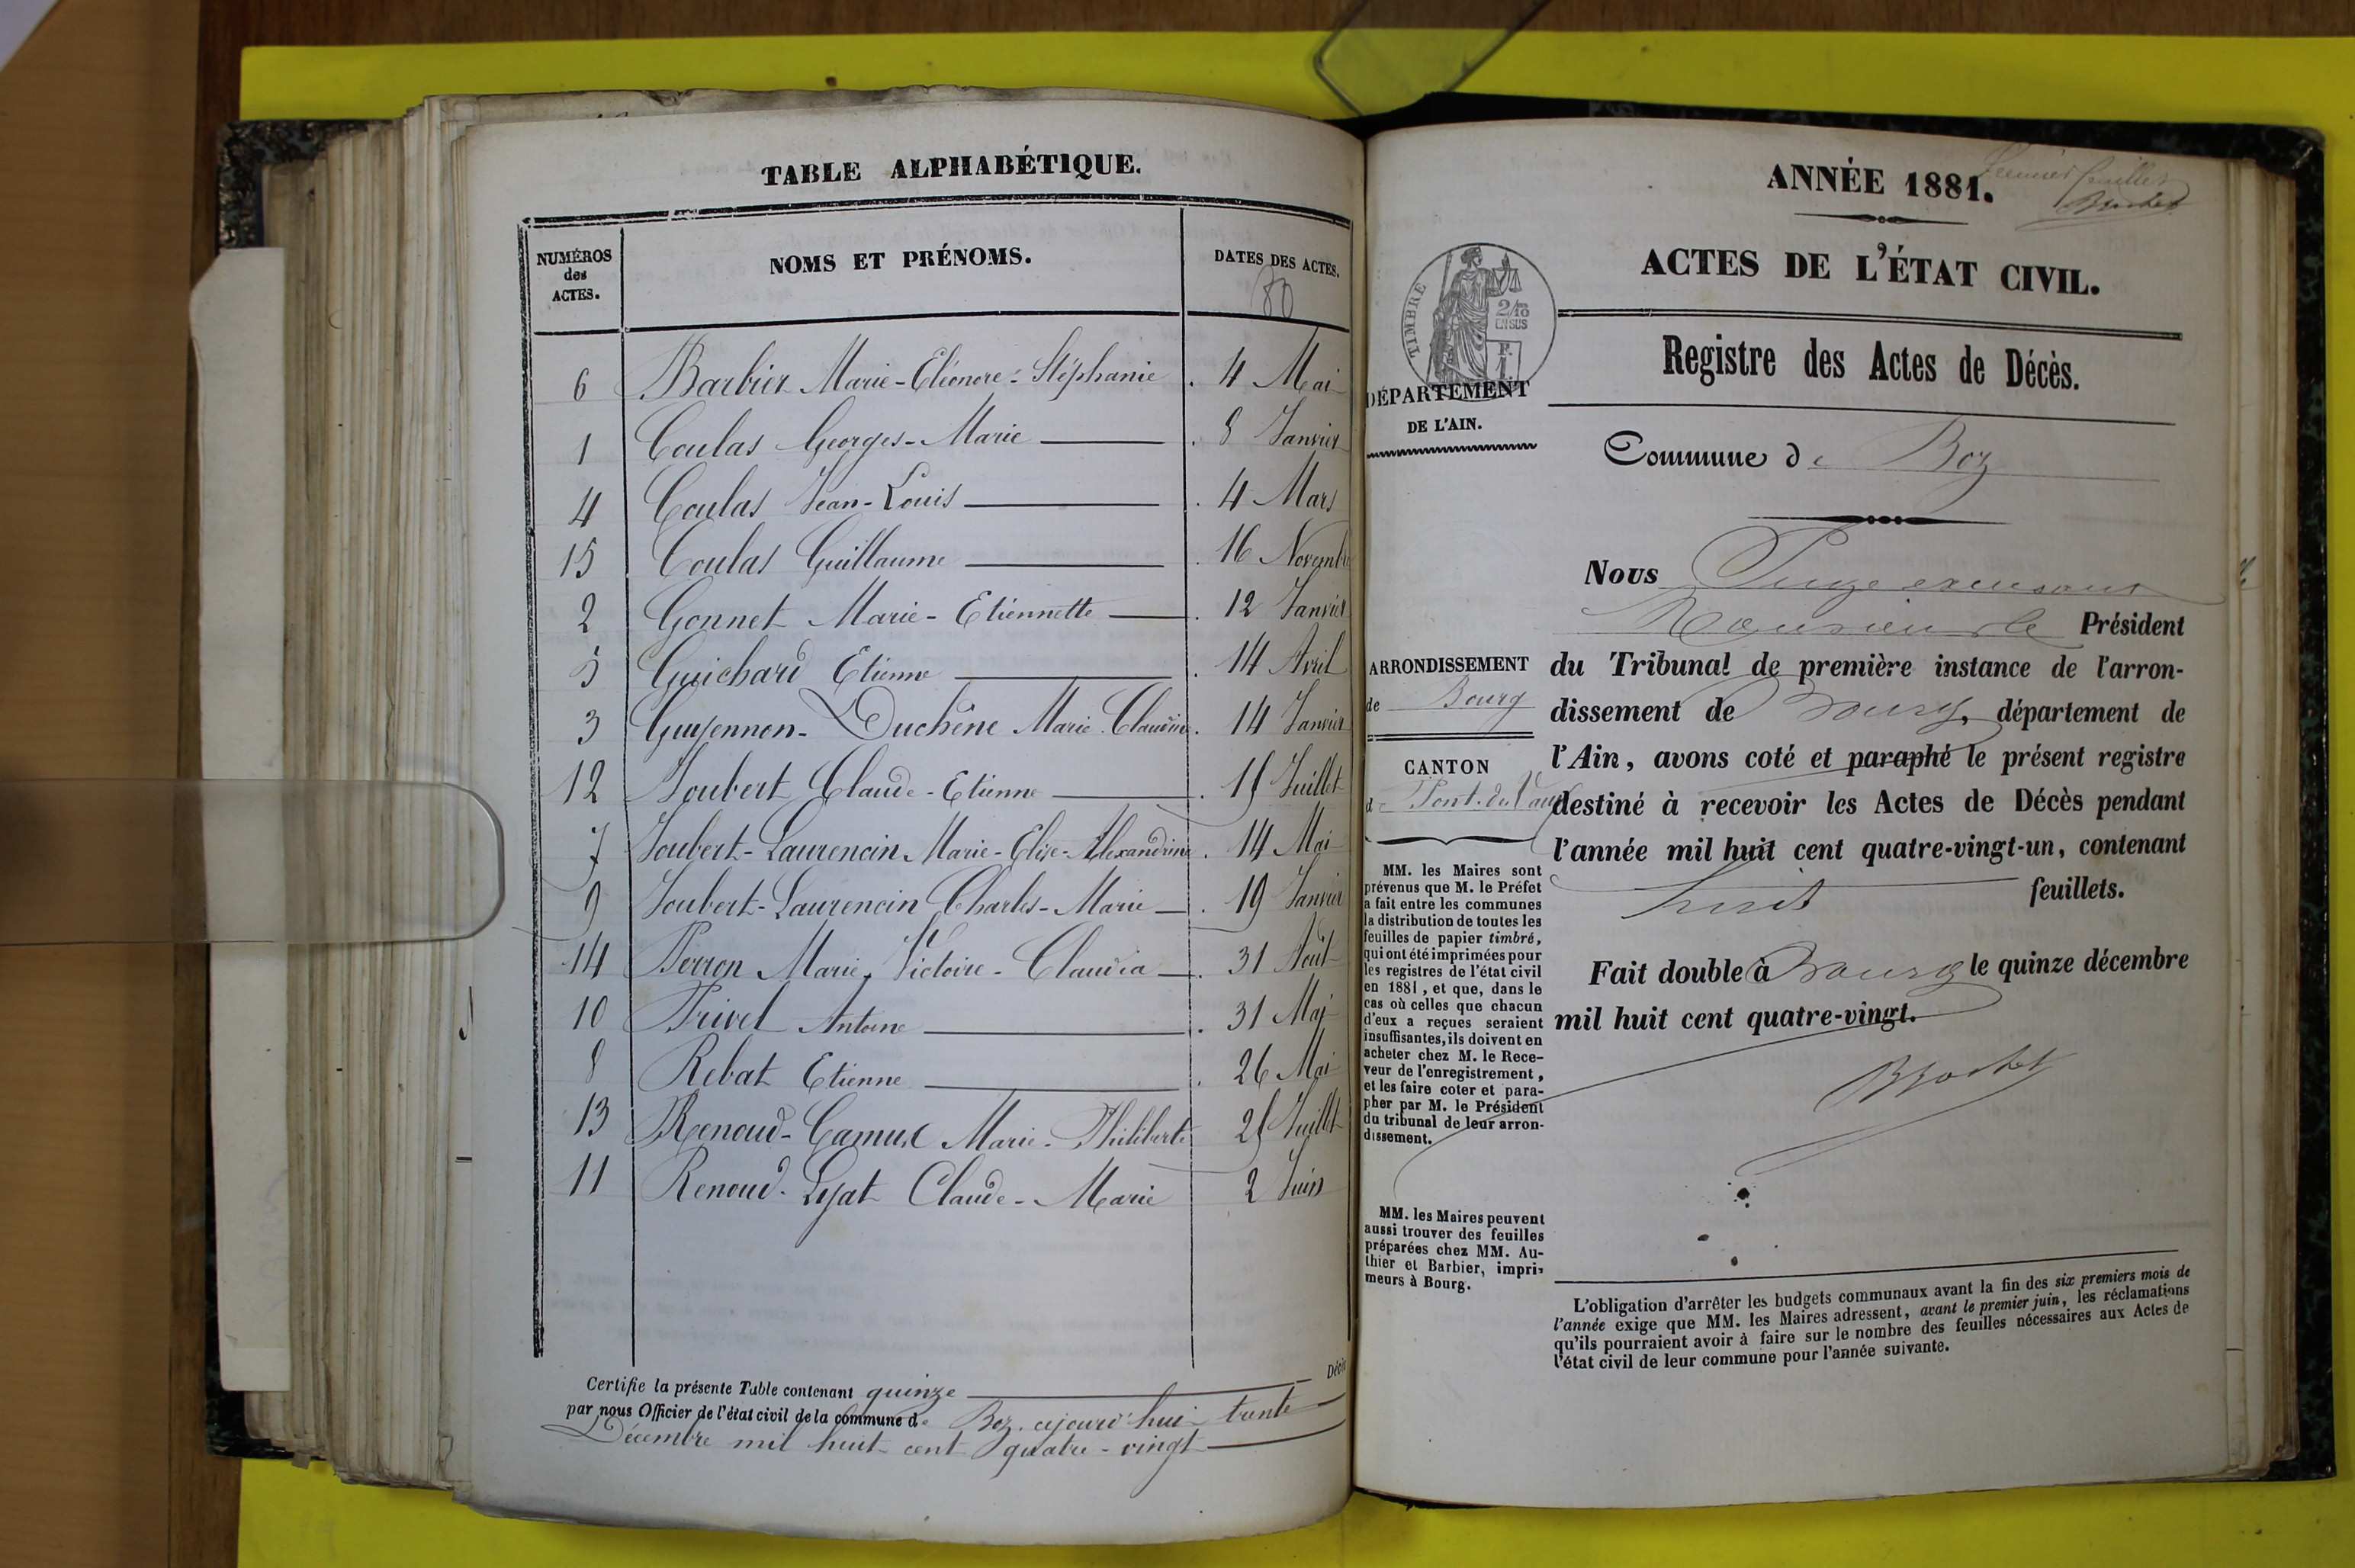 TABLE ALPHABÉTIQUE.
NUMÉROS
des
ACTES.
NOMS ET PRÉNOMS.
DATES DES ACTES.
80
6 Barbier Marie-Eléonore-Stéphanie 4 Mai
1 Coulas Georges-Marie 8 Janvier
4 Coulas Jean-Louis 4 Mars
15 Coulas Guillaume 16 Novembre
2 Gonnet Marie-Etiennette 12 Janvier
5 Guichard Etienne 14 Avril
3 Guyennon-Duchêne Marie Claudine 14 Janvier
12 Joubert Claude-Etienne 15 Juillet
7 Joubert-Laurencin Marie-Elise-Alexandrine 14 Mai
9 Joubert-Laurencin Charles-Marie 19 Janvier
14 Perron Marie, Victoire-Claudia 31 Août
10 Privel Antoine 31 Mai
8 Rebat Etienne 26 Mai
13 Renoud-Camus Marie-Philiberte 25 Juillet
11 Renoud-Lyat Claude-Marie 2 Juin
Certifie la présente Table contenant quinze Décès
par nous Officier de l'état civil de la commune de Boz, aujourd'hui trente
Décembre mil huit cent quatre-vingt
Premier feuillet
Brochet
ANNÉE 1881.
ACTES DE L'ÉTAT CIVIL.
TIMBRE
2/10
EN SUS
F.
1.
Registre des Actes de Décès.
DÉPARTEMENT
DE L'AIN.
Commune de Boz
Nous Juge
Monsieur le Président
du Tribunal de première instance de l'arron-
dissement de Bourg, département de
l'Ain, avons coté et paraphé le présent registre
destiné à recevoir les Actes de Décès pendant
l'année mil huit cent quatre-vingt-un, contenant
huit feuillets.
Fait double à Bourg le quinze décembre
mil huit cent quatre-vingt.
Brochet
ARRONDISSEMENT
de Bourg
CANTON
de Pont-de-Vaux
MM. les Maires sont
prévenus que M. le Préfet
a fait entre les communes
la distribution de toutes les
feuilles de papier timbré,
qui ont été imprimées pour
les registres de l'état civil
en 1881, et que, dans le
cas où celles que chacun
d'eux a reçues seraient
insuffisantes, ils doivent en
acheter chez M. le Rece-
veur de l'enregistrement,
et les faire coter et para-
pher par M. le Président
du tribunal de leur arron-
dissement.
MM. les Maires peuvent
aussi trouver des feuilles
préparées chez MM. Au-
thier et Barbier, impri-
meurs à Bourg.
L'obligation d'arrêter les budgets communaux avant la fin des six premiers mois de
l'année exige que MM. les Maires adressent, avant le premier juin, les réclamations
qu'ils pourraient avoir à faire sur le nombre des feuilles nécessaires aux Actes de
l'état civil de leur commune pour l'année suivante.